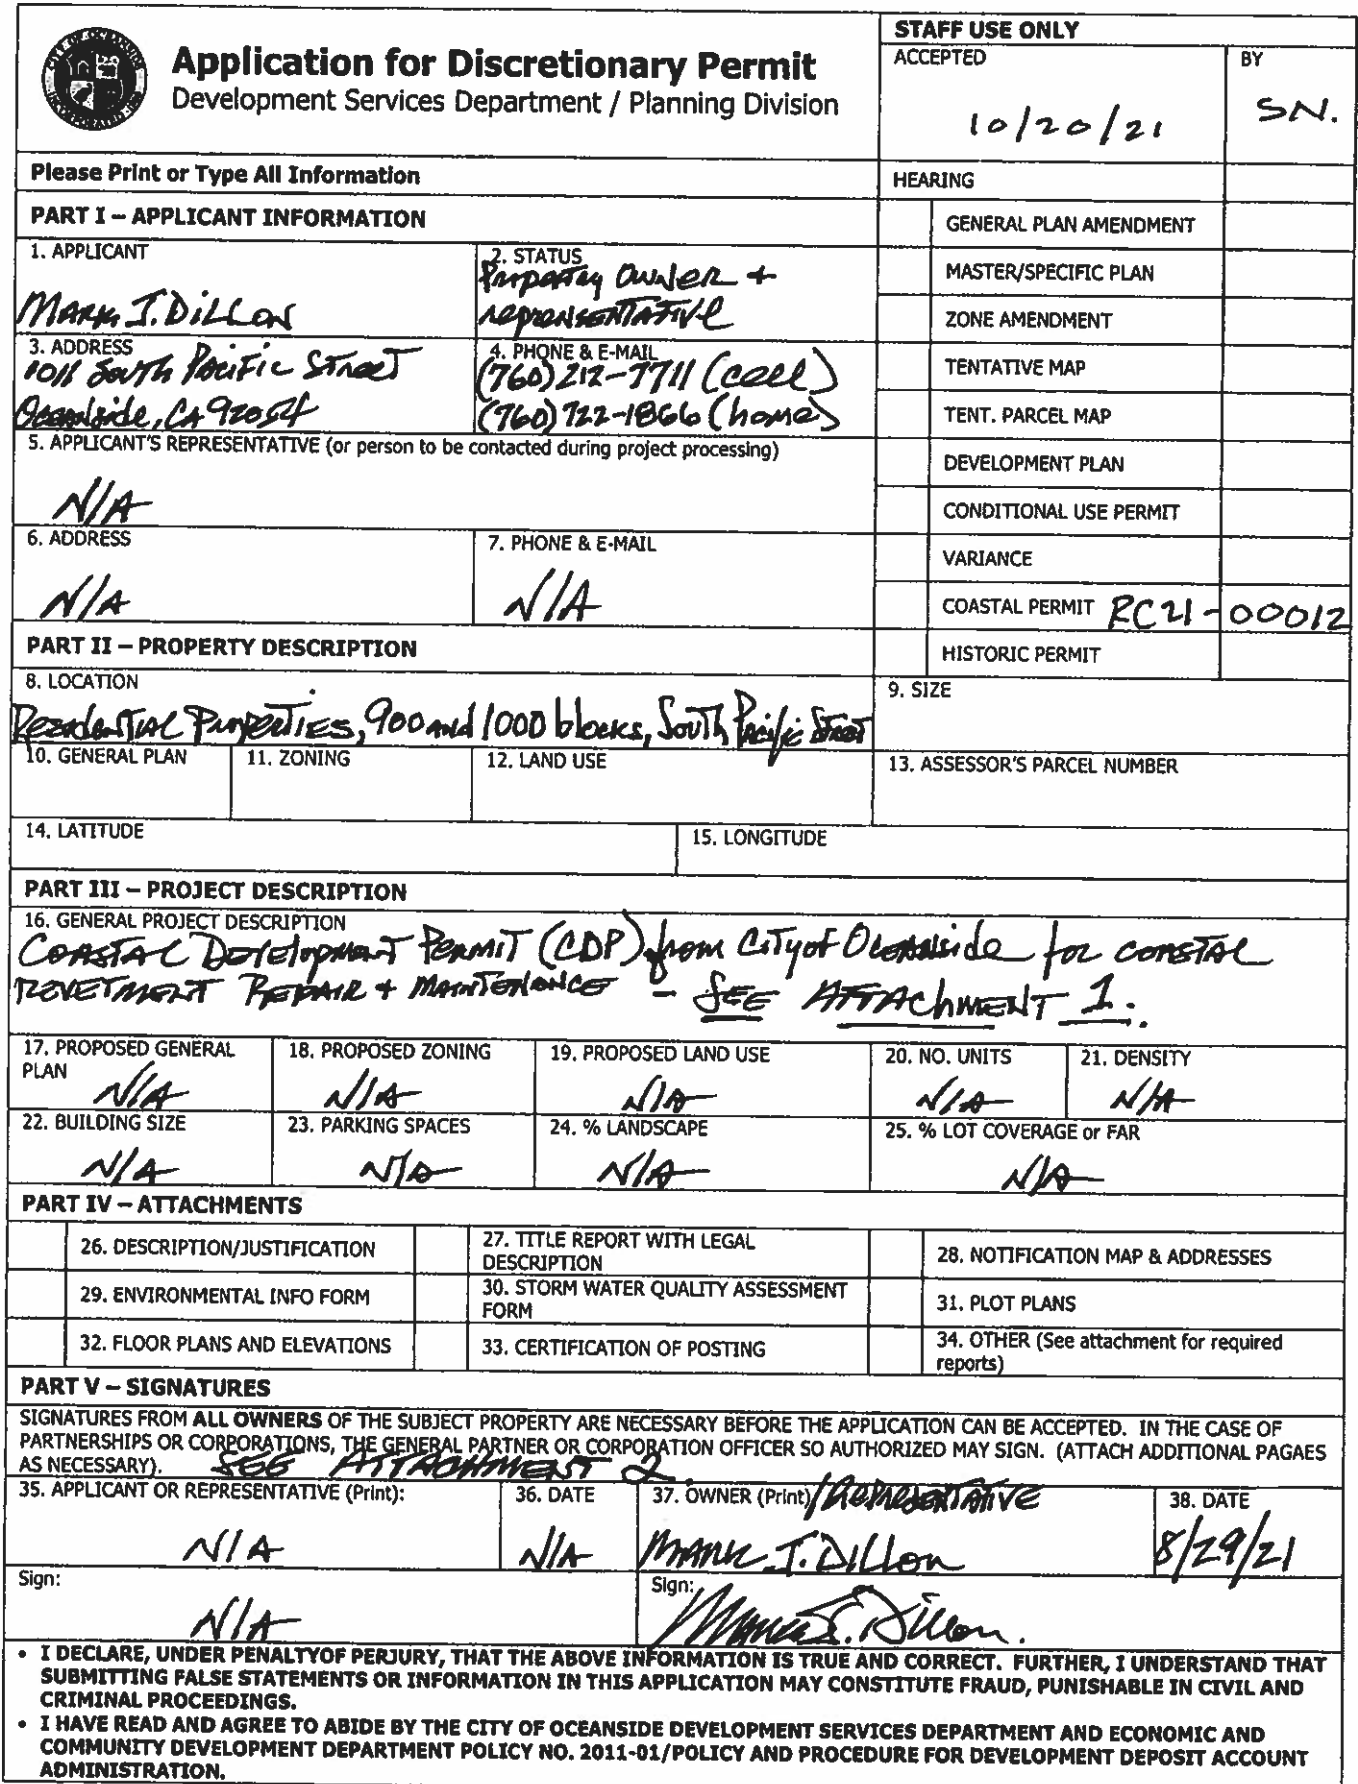 CITY OF OCEANSIDE
INCORPORATED 1888
Application for Discretionary Permit
Development Services Department / Planning Division
STAFF USE ONLY
ACCEPTED
BY
10/20/21
SN.
Please Print or Type All Information
HEARING
PART I – APPLICANT INFORMATION
GENERAL PLAN AMENDMENT
MASTER/SPECIFIC PLAN
ZONE AMENDMENT
TENTATIVE MAP
TENT. PARCEL MAP
DEVELOPMENT PLAN
CONDITIONAL USE PERMIT
VARIANCE
COASTAL PERMIT RC21-00012
HISTORIC PERMIT
1. APPLICANT
Mark J. Dillon
2. STATUS
Property Owner +
representative
3. ADDRESS
1011 South Pacific Street
Oceanside, CA 92054
4. PHONE & E-MAIL
(760) 212-7711 (cell)
(760) 722-1866 (home)
5. APPLICANT'S REPRESENTATIVE (or person to be contacted during project processing)
N/A
6. ADDRESS
N/A
7. PHONE & E-MAIL
N/A
PART II – PROPERTY DESCRIPTION
8. LOCATION
Residential Properties, 900 and 1000 blocks, South Pacific Street
9. SIZE
10. GENERAL PLAN
11. ZONING
12. LAND USE
13. ASSESSOR'S PARCEL NUMBER
14. LATITUDE
15. LONGITUDE
PART III – PROJECT DESCRIPTION
16. GENERAL PROJECT DESCRIPTION
Coastal Development Permit (CDP) from City of Oceanside for coastal
revetment Repair + Maintenance - SEE ATTAChMENT 1.
17. PROPOSED GENERAL
PLAN
N/A
18. PROPOSED ZONING
N/A
19. PROPOSED LAND USE
N/A
20. NO. UNITS
N/A
21. DENSITY
N/A
22. BUILDING SIZE
N/A
23. PARKING SPACES
N/A
24. % LANDSCAPE
N/A
25. % LOT COVERAGE or FAR
N/A
PART IV – ATTACHMENTS
26. DESCRIPTION/JUSTIFICATION
27. TITLE REPORT WITH LEGAL
DESCRIPTION
28. NOTIFICATION MAP & ADDRESSES
29. ENVIRONMENTAL INFO FORM
30. STORM WATER QUALITY ASSESSMENT
FORM
31. PLOT PLANS
32. FLOOR PLANS AND ELEVATIONS
33. CERTIFICATION OF POSTING
34. OTHER (See attachment for required
reports)
PART V – SIGNATURES
SIGNATURES FROM ALL OWNERS OF THE SUBJECT PROPERTY ARE NECESSARY BEFORE THE APPLICATION CAN BE ACCEPTED. IN THE CASE OF
PARTNERSHIPS OR CORPORATIONS, THE GENERAL PARTNER OR CORPORATION OFFICER SO AUTHORIZED MAY SIGN. (ATTACH ADDITIONAL PAGAES
AS NECESSARY). SEE ATTACHMENT 2.
35. APPLICANT OR REPRESENTATIVE (Print):
N/A
36. DATE
N/A
37. OWNER (Print) / Representative
Mark J. Dillon
38. DATE
8/29/21
Sign:
N/A
Sign:
Mark J. Dillon.
• I DECLARE, UNDER PENALTYOF PERJURY, THAT THE ABOVE INFORMATION IS TRUE AND CORRECT. FURTHER, I UNDERSTAND THAT
SUBMITTING FALSE STATEMENTS OR INFORMATION IN THIS APPLICATION MAY CONSTITUTE FRAUD, PUNISHABLE IN CIVIL AND
CRIMINAL PROCEEDINGS.
• I HAVE READ AND AGREE TO ABIDE BY THE CITY OF OCEANSIDE DEVELOPMENT SERVICES DEPARTMENT AND ECONOMIC AND
COMMUNITY DEVELOPMENT DEPARTMENT POLICY NO. 2011-01/POLICY AND PROCEDURE FOR DEVELOPMENT DEPOSIT ACCOUNT
ADMINISTRATION.